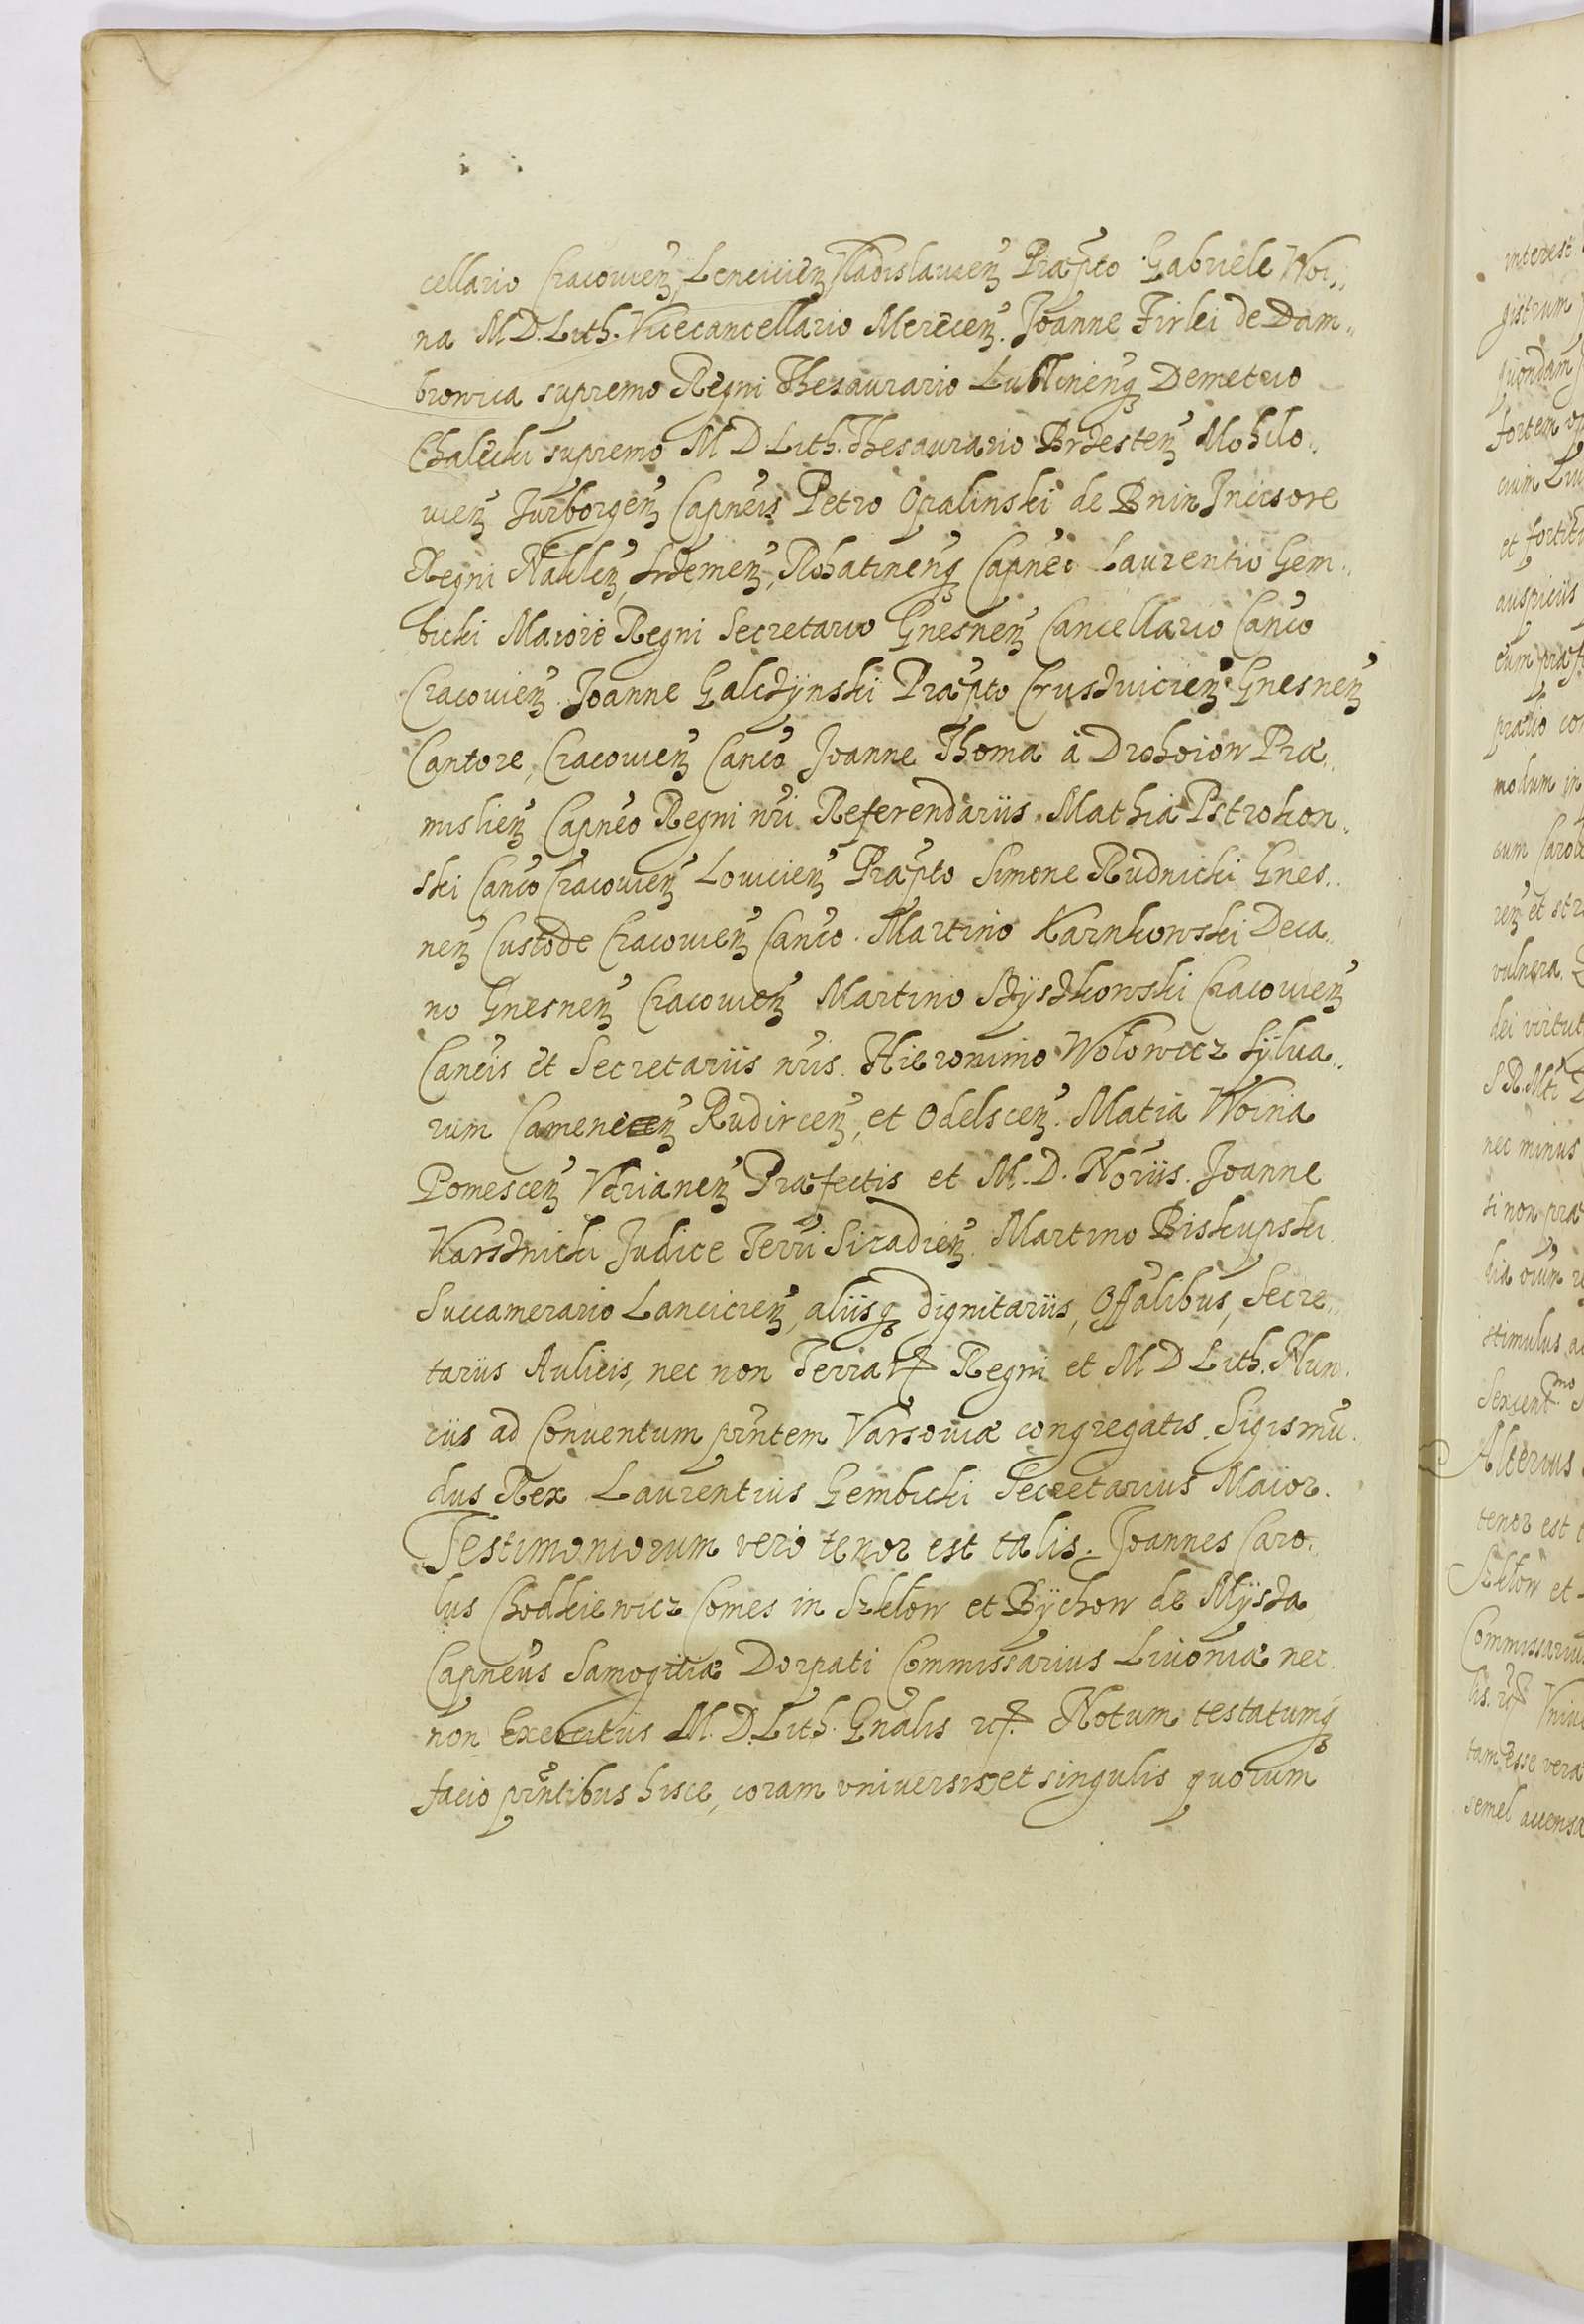 cellario Cracovien̄ Lencicien̄ Vladislavien̄ Præpto Gabriele Woi„
na M D. Lith. Vicecancellario Merecen̄. Joanne Firlei de Dam„
browica supremo Regni Thesaurario Lublinen̄q Demetrio
Chalecki supremo M D. Lith. Thesaurario Brzesten̄ Mohilo„
vien̄ Jurborgen̄ Capneis Petro Opalinski de Bnin Incisore
Regni Naklen̄, Srzemen̄, Rohatinen̄q Capneo Laurentio Gem„
bicki Maiore Regni Secretario Gnesnen̄ Cancellario Canco
Cracovien̄ Joanne Galczÿnski Præpto Cruszvicien̄ Gnesnen̄
Cantore, Cracovien̄ Canco Joanne Thoma à Drohoiow Præ„
mislien̄ Capneo Regni nri Referendariis. Mathia Pstrokon„
ski Canco Cracovien̄ Lovicien̄ Præpto Simone Rudnicki Gnes„
nen̄ Custode Cracovien̄ Canco. Martino Karnkowski Deca„
no Gnesnen̄ Cracovien̄ Martino Szÿszkowski Cracovien̄
Cancis et Secretariis nris. Hieronimo Wołowicz Sÿlva„
rum Rudircen̄, et Odelscen̄. Matia Woina
Pomescen̄ Præfectis et M. D. Noriis. Joanne
Karsznicki Judice Terri Siradien̄. Martino Biskupski
Succamerario Lancicien̄, aliisq dignitariis, Offalibus, Secre„
tariis Aulicis, nec non Terraꝝ Regni et M D Lith. Nun„
ciis ad Conventum pn̄tem Varsoviæ congregatis. Sigismū„
dus Rex Laurentius Gembicki Secretarius Maior.
Testimoniorum verò tenor est talis. Joannes Caro„
lus Chodkiewicz Comes in Szklow et Bÿchow de Mÿsza
Capneus Samogitiæ Dorpati Commissarius Livoniæ nec
non Exercitus M. D. Lith. Gnalis Notum testatumq
facio pn̄tibus hisce, coram vniversis et singulis quorum

interest
gistrum
quondam
fortem
et fortit
auspiciis
eum præf
prælio
modum in
cum Carol
ren̄ et
vulnera.
dei virtut
nec minus
si non præ
stimulus
Alterius
tenor est
Szklow et
Commissarius
tam esse vera
semel accensa